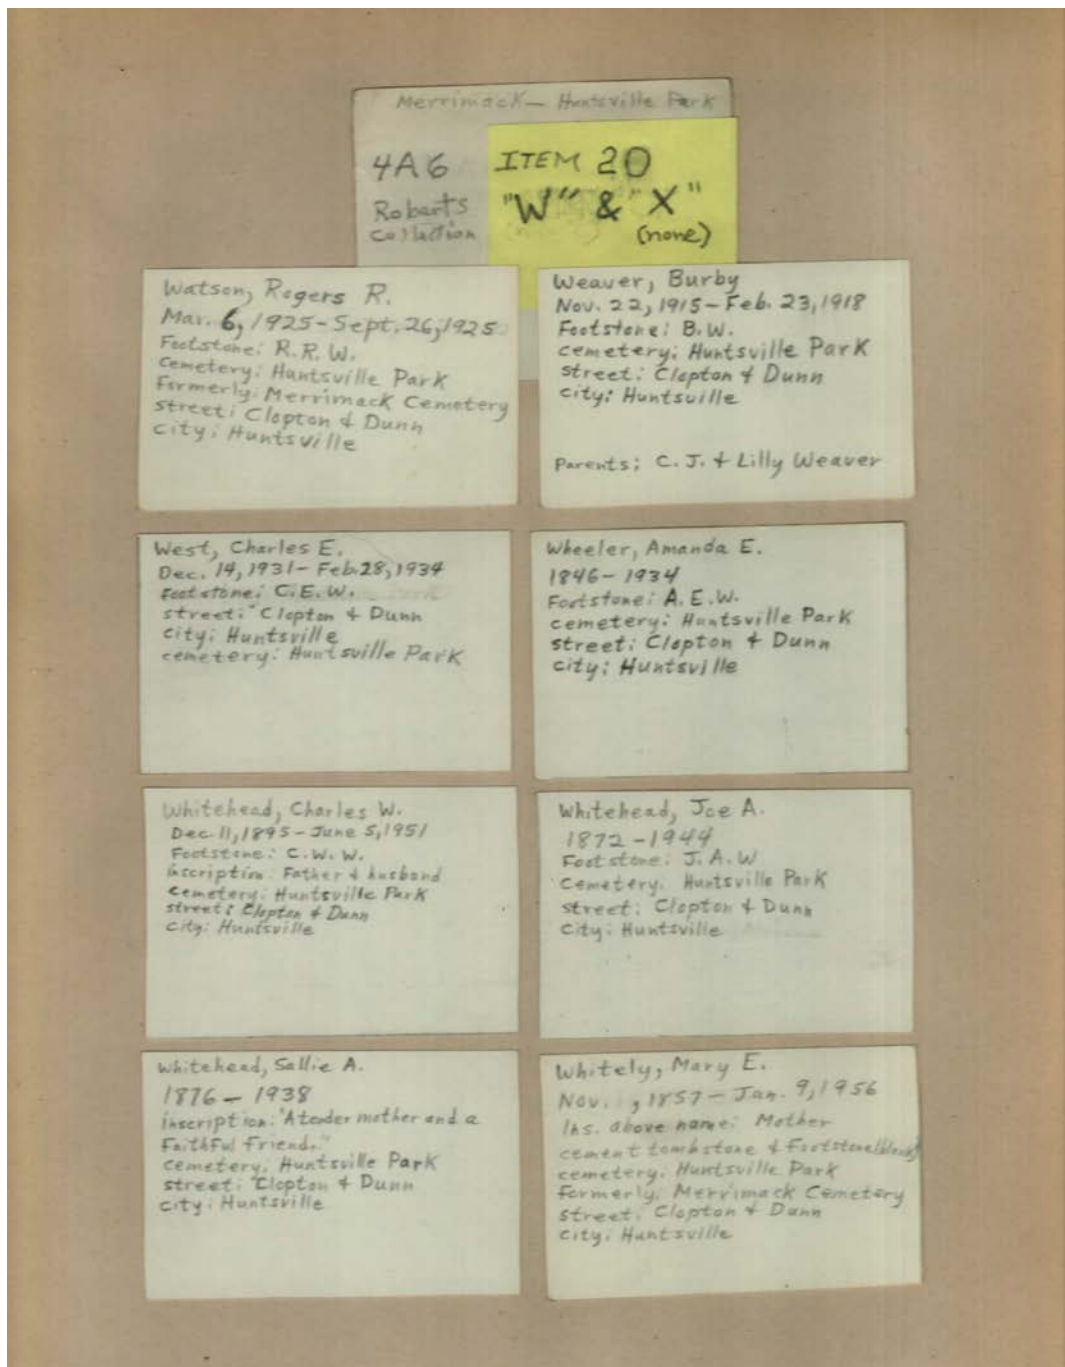 Merrimack — Huntsville Park
4A6
Roberts
Collection
ITEM 20
"W" & "X"
(none)
Watson, Rogers R.
Mar. 6, 1925 - Sept. 26, 1925
Footstone: R. R. W.
cemetery: Huntsville Park
formerly: Merrimack Cemetery
street: Clopton & Dunn
city: Huntsville
Weaver, Burby
Nov. 22, 1915 - Feb. 23, 1918
Footstone: B. W.
cemetery: Huntsville Park
street: Clopton & Dunn
city: Huntsville
Parents: C. J. & Lilly Weaver
West, Charles E.
Dec. 14, 1931 - Feb. 28, 1934
Footstone: C. E. W.
street: Clopton & Dunn
city: Huntsville
cemetery: Huntsville Park
Wheeler, Amanda E.
1846 - 1934
Footstone: A. E. W.
cemetery: Huntsville Park
street: Clopton & Dunn
city: Huntsville
Whitehead, Charles W.
Dec. 11, 1895 - June 5, 1951
Footstone: C. W. W.
inscription: Father & husband
cemetery: Huntsville Park
street: Clopton & Dunn
city: Huntsville
Whitehead, Joe A.
1872 - 1944
Footstone: J. A. W
Cemetery: Huntsville Park
street: Clopton & Dunn
city: Huntsville
Whitehead, Sallie A.
1876 - 1938
inscription: "A tender mother and a
Faithful Friend."
cemetery: Huntsville Park
street: Clopton & Dunn
city: Huntsville
Whitely, Mary E.
Nov. , 1857 - Jan. 9, 1956
Ins. above name: Mother
cement tombstone & Footstone
cemetery: Huntsville Park
formerly: Merrimack Cemetery
street: Clopton & Dunn
city: Huntsville